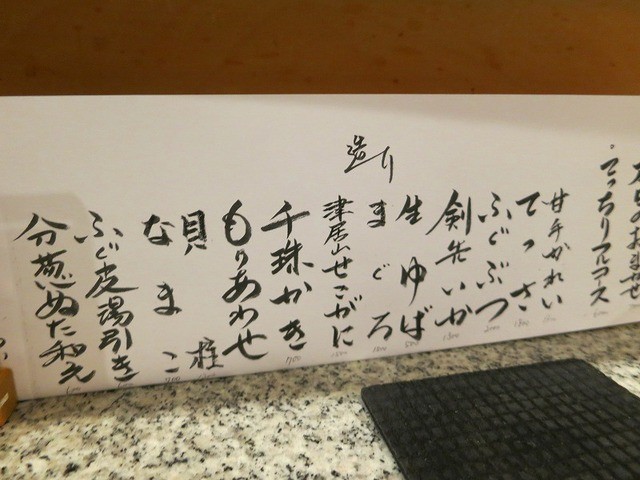 本日のおまかせ
てっちりフルコース
造り
甘手かれい
てっさ
ふぐぶつ
剣先いか 1300
生ゆば
まぐろ
津居山せこがに
千珠かき
もりあわせ
貝柱
なまこ
ふぐ皮湯引き
分葱ぬた和え